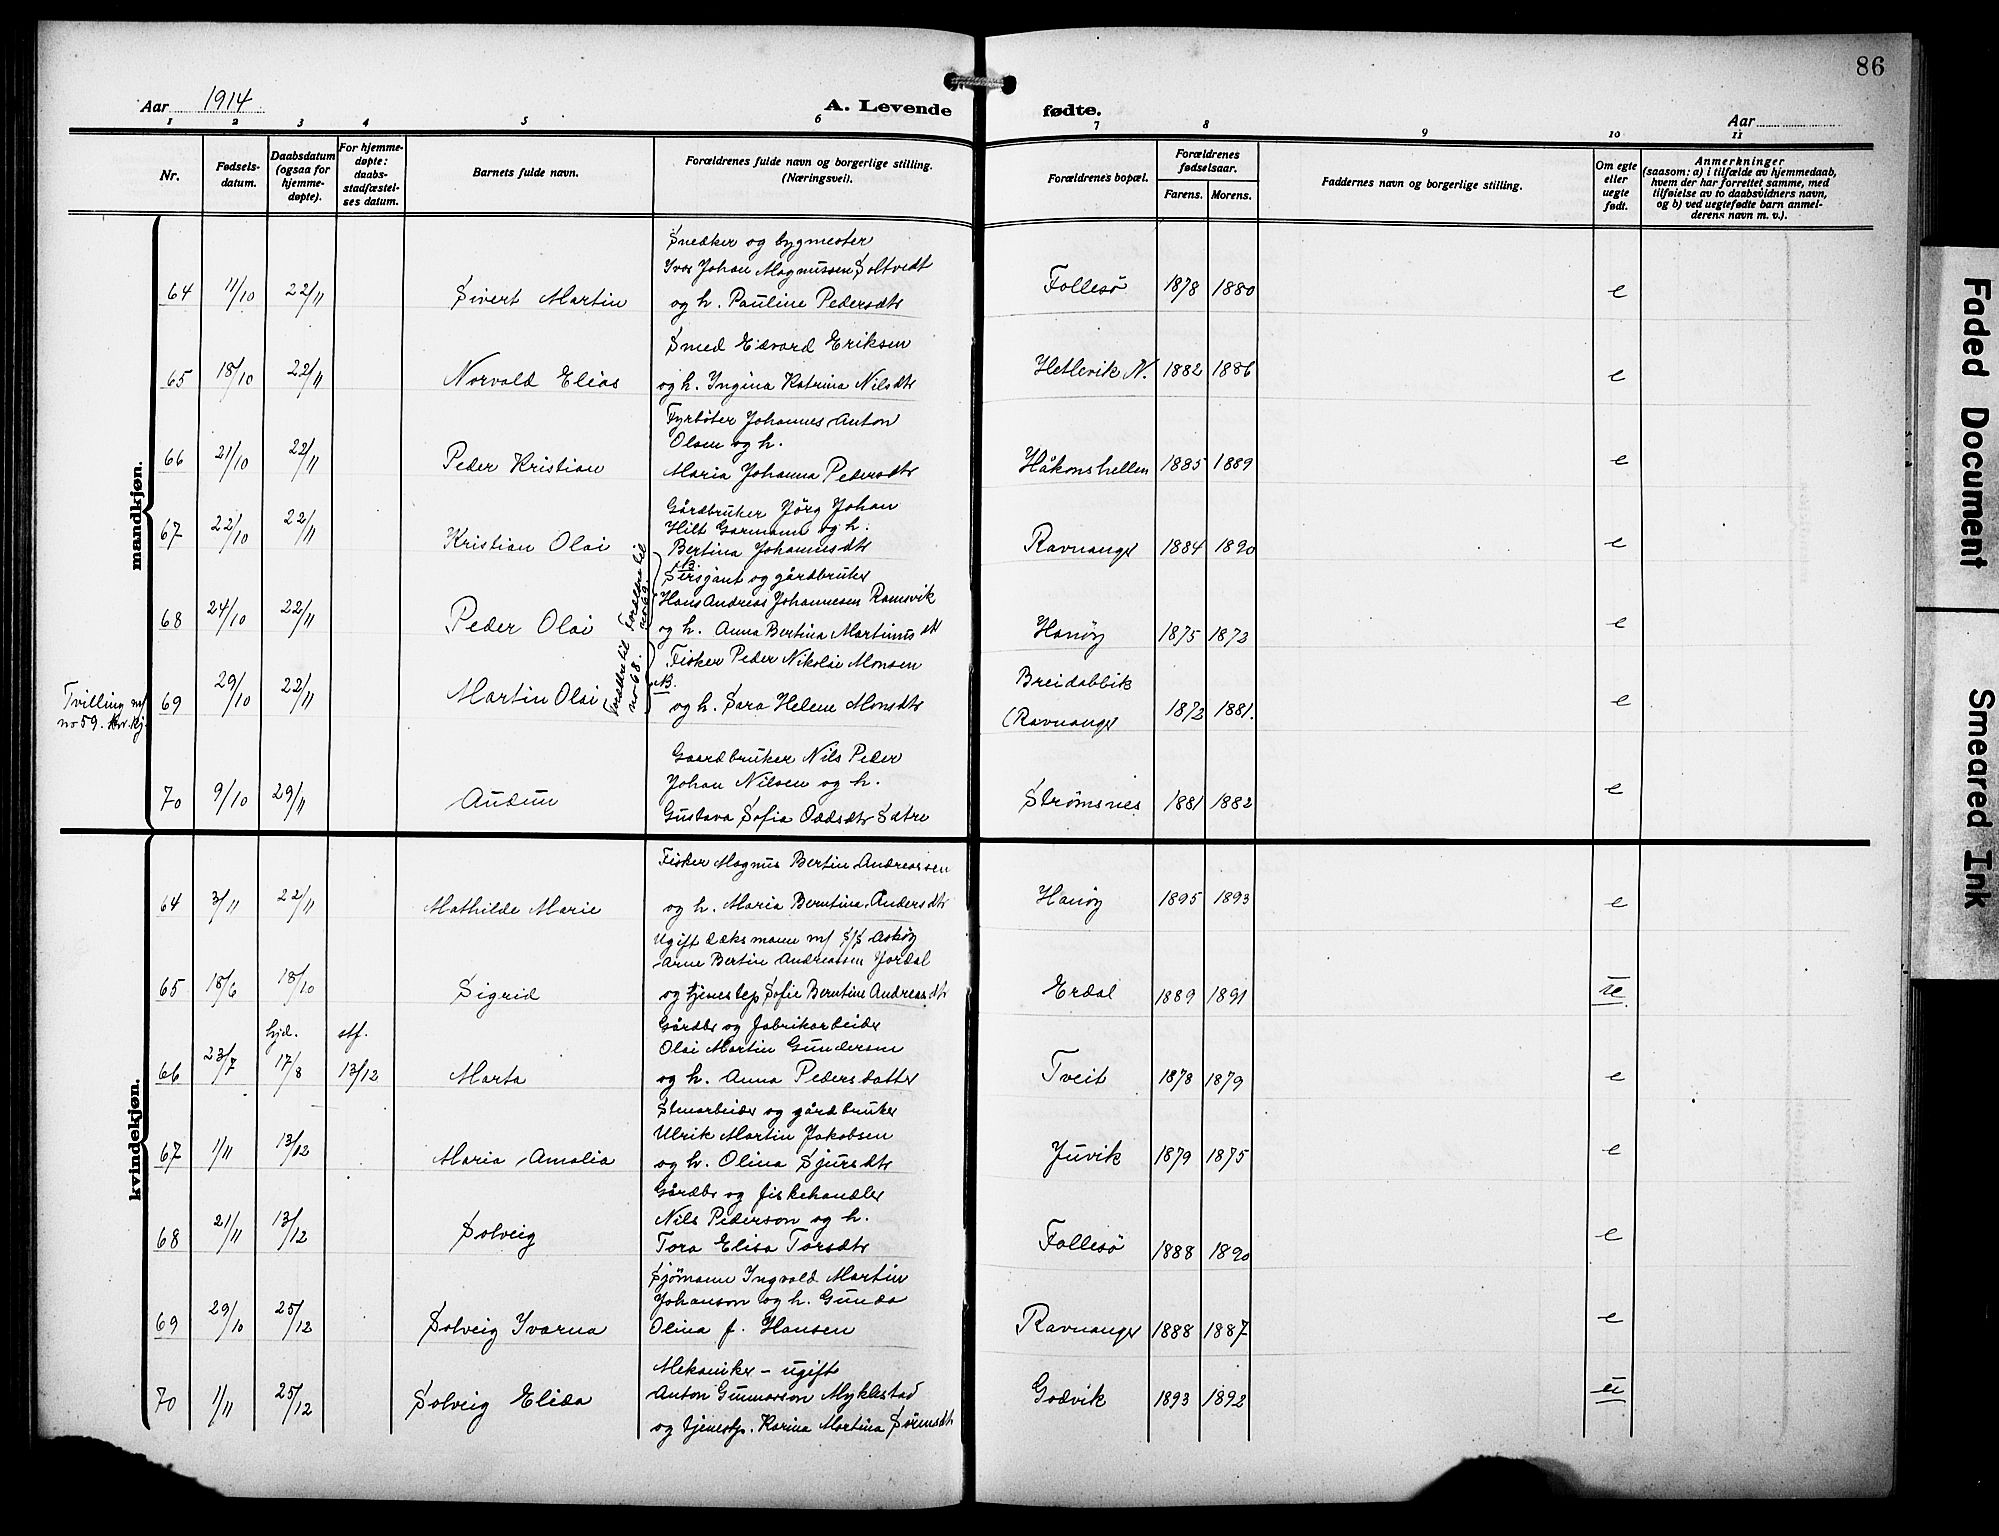 86
Aar 1914
A. Levende fødte.
Aar
1 2 3 4 5 6 7 8 9 10 11
Nr.
Fødsels-
datum.
Daabsdatum
(ogsaa for
hjemme-
døpte).
For hjemme-
døpte:
daabs-
stadfæstel-
ses datum.
Barnets fulde navn.
Forældrenes fulde navn og borgerlige stilling.
(Næringsvei).
Forældrenes bopæl.
Forældrenes
fødselsaar.
Farens. Morens.
Faddernes navn og borgerlige stilling.
Om egte
eller
uegte
født.
Anmerkninger
(saasom: a) i tilfælde av hjemmedaab,
hvem der har forrettet samme, med
tilføielse av to daabsvidners navn,
og b) ved uegtefødte barn anmel-
derens navn m. v.).
mandkjøn.
Snedker og bygmester
Ivar Johan Magnussen Soltvedt
64 11/10 22/11 Sivert Martin og h. Pauline Pedersdtr Follesö 1878 1880 e
Smed Edvard Eriksen
65 18/10 22/11 Norvald Elias og h. Ingina Katrina Nilsdtr Hetlevik N. 1882 1886 e
Fyrböter Johannes Anton
Olsen og h.
66 21/10 22/11 Peder Kristian Maria Johanna Pedersdtr Håkonshellen 1885 1889 e
Gårdbruker Jörg Johan
Hilt Garmann og h.
67 22/10 22/11 Kristian Olai Bertina Johannesdtr Ravnanger 1884 1890 e
Forældre til
no 69.
NB.
Sersjant og gårdbruker
Hans Andreas Johannesen Ramsvik
68 24/10 22/11 Peder Olai og h. Anna Bertina Martinusdtr Hanöy 1875 1873 e
Forældre til
no 68.
NB.
Fisker Peder Nikolai Monsen
Tvilling m/
no 59. kv.kj.
69 29/10 22/11 Martin Olai og h. Sara Helene Monsdtr Breidablik
(Ravnanger 1873 1881. e
Gaardbruker Nils Peder
Johan Nilsen og h.
70 9/10 29/11 Audun Gustava Sofia Oddsdtr Sætre Strømsnes 1881 1882 e
kvindekjøn.
Fisker Magnus Bertin Andreassen
64 3/11 22/11 Mathilde Marie og h. Maria Berntina Andersdtr Hanöy 1895 1893 e
Ugift dæksmann m/ S/S Asköy
Arne Bertin Andreassen Jordal
65 18/6 18/10 Sigrid og tjenestep Sofie Berntine Andreasdtr Erdal 1889 1891 ue.
Gårdbr og fabrikarbeider
Olai Martin Gundersen
66 23/7 hjd. 17/8 stf. 13/12 Marta og h. Anna Pedersdatter Tveit 1878 1879 e
Stenarbeider og gårdbruker
Ulrik Martin Jakobsen
67 1/11 13/12 Maria Amalia og h. Olina Sjursdtr Juvik 1879 1875 e
Gårdbr og fiskehandler
Nils Pederson og h.
68 21/11 13/12 Solveig Tora Elisa Torsdtr Follesö 1888 1890 e
Sjömann Ingvald Martin
Johanson og h. Gunda
69 29/10 25/12 Solveig Ivarna Olina f. Hansen Ravnanger 1888 1887 e
Mekaniker - ugift
Anton Gunnarson Myklestad
70 1/11 25/12 Solveig Elida og tjenestp. Karina Martina Sörensdtr Godvik 1893 1892 u
Faded Document
Smeared Ink